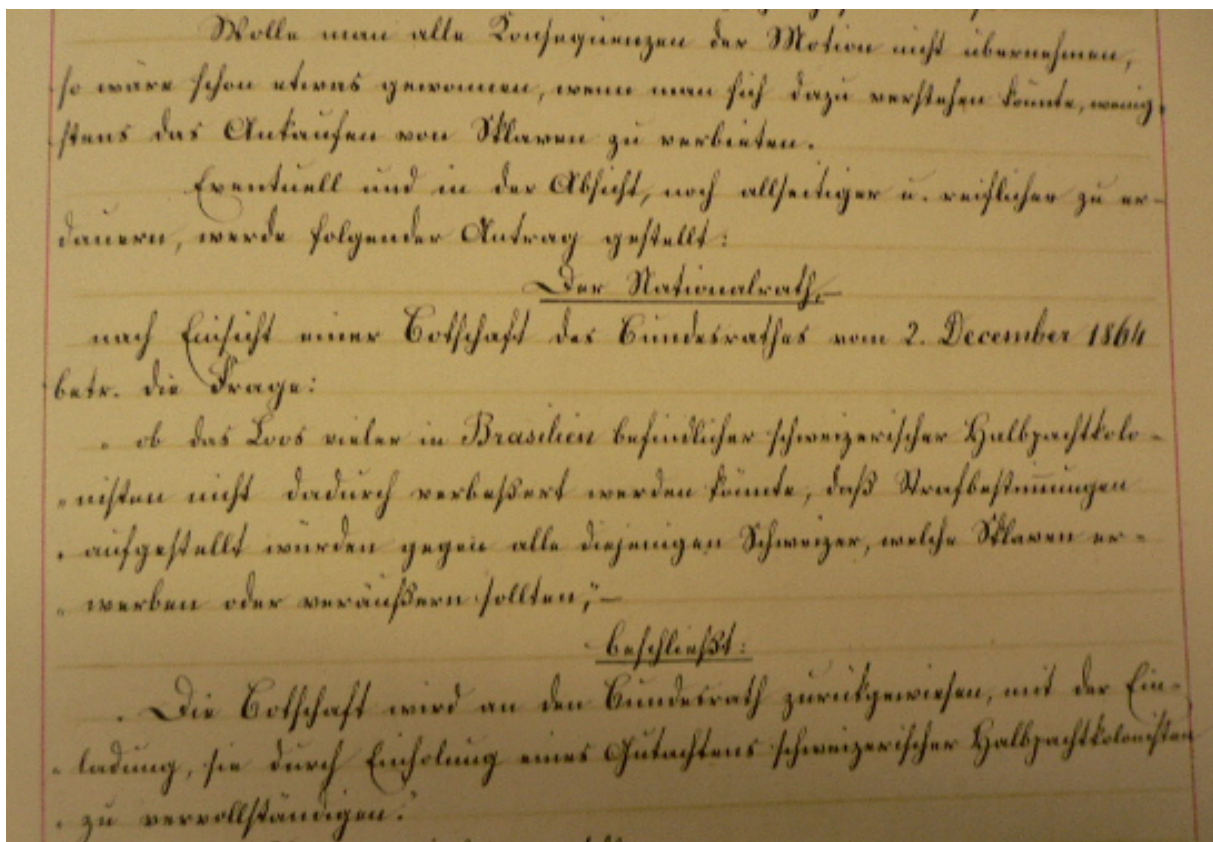 Wolle man alle Konsequenzen der Motion nicht übernehmen,
so wäre schon etwas gewonnen, wenn man sich dazu verstehen könnte, wenig-
stens das Ankaufen von Sklaven zu verbieten.
Eventuell und in der Absicht, noch allseitiger u. reiflicher zu er-
dauern, werde folgender Antrag gestellt:
Der Nationalrath,
nach Einsicht einer Botschaft des Bundesrathes vom 2. December 1864
betr. die Frage:
„ ob das Loos vieler in Brasilien befindlicher schweizerischer Halbpachtkolo-
„ nisten nicht dadurch verbeßert werden könnte, daß Strafbestim̅ungen
„ aufgestellt würden gegen alle diejenigen Schweizer, welche Sklaven er-
„ werben oder veräußern sollten,“ –
beschließt:
„ Die Botschaft wird an den Bundesrath zurükgewiesen, mit der Ein-
„ ladung, sie durch Einholung eines Gutachtens schweizerischer Halbpachtkolonisten
„ zu vervollständigen.“